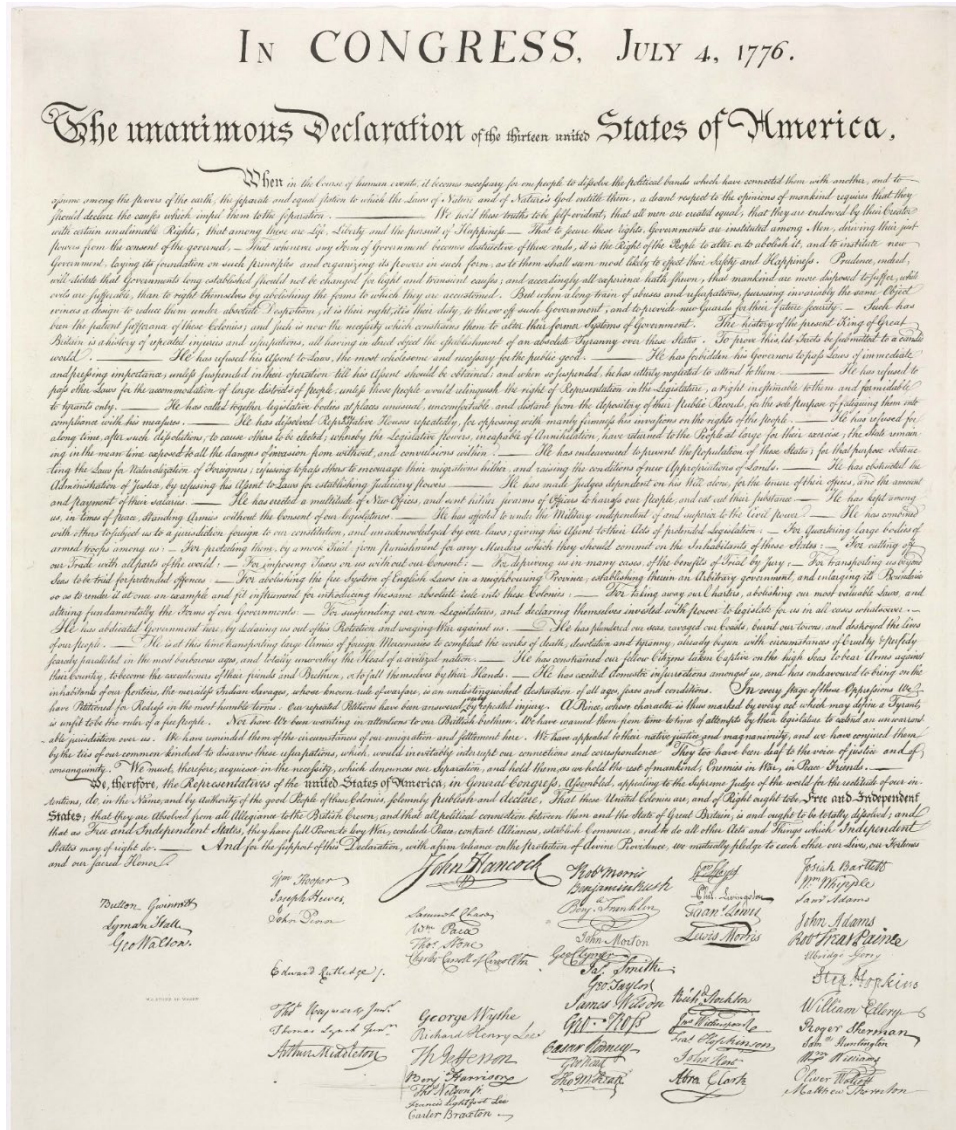 IN CONGRESS, JULY 4, 1776.
The unanimous Declaration of the thirteen united States of America,
When in the Course of human events, it becomes necessary for one people to dissolve the political bands which have connected them with another, and to
assume among the powers of the earth, the separate and equal station to which the Laws of Nature and of Nature's God entitle them, a decent respect to the opinions of mankind requires that they
should declare the causes which impel them to the separation. — We hold these truths to be self-evident, that all men are created equal, that they are endowed by their Creator
with certain unalienable Rights, that among these are Life, Liberty and the pursuit of Happiness. — That to secure these rights, Governments are instituted among Men, deriving their just
powers from the consent of the governed, — That whenever any Form of Government becomes destructive of these ends, it is the Right of the People to alter or to abolish it, and to institute new
Government, laying its foundation on such principles and organizing its powers in such form, as to them shall seem most likely to effect their Safety and Happiness. Prudence, indeed,
will dictate that Governments long established should not be changed for light and transient causes; and accordingly all experience hath shewn, that mankind are more disposed to suffer, while
evils are sufferable, than to right themselves by abolishing the forms to which they are accustomed. But when a long train of abuses and usurpations, pursuing invariably the same Object
evinces a design to reduce them under absolute Despotism, it is their right, it is their duty, to throw off such Government, and to provide new Guards for their future security. — Such has
been the patient sufferance of these Colonies; and such is now the necessity which constrains them to alter their former Systems of Government. The history of the present King of Great
Britain is a history of repeated injuries and usurpations, all having in direct object the establishment of an absolute Tyranny over these States. To prove this, let Facts be submitted to a candid
world. — He has refused his Assent to Laws, the most wholesome and necessary for the public good. — He has forbidden his Governors to pass Laws of immediate
and pressing importance, unless suspended in their operation till his Assent should be obtained; and when so suspended, he has utterly neglected to attend to them. — He has refused to
pass other Laws for the accommodation of large districts of people, unless those people would relinquish the right of Representation in the Legislature, a right inestimable to them and formidable
to tyrants only. — He has called together legislative bodies at places unusual, uncomfortable, and distant from the depository of their Public Records, for the sole purpose of fatiguing them into
compliance with his measures. — He has dissolved Representative Houses repeatedly, for opposing with manly firmness his invasions on the rights of the people. — He has refused for
a long time, after such dissolutions, to cause others to be elected; whereby the Legislative powers, incapable of Annihilation, have returned to the People at large for their exercise; the State remain-
ing in the mean time exposed to all the dangers of invasion from without, and convulsions within. — He has endeavoured to prevent the population of these States; for that purpose obstruc-
ting the Laws for Naturalization of Foreigners; refusing to pass others to encourage their migrations hither, and raising the conditions of new Appropriations of Lands. — He has obstructed the
Administration of Justice, by refusing his Assent to Laws for establishing Judiciary powers. — He has made Judges dependent on his Will alone, for the tenure of their offices, and the amount
and payment of their salaries. — He has erected a multitude of New Offices, and sent hither swarms of Officers to harass our people, and eat out their substance. — He has kept among
us, in times of peace, Standing Armies without the Consent of our legislatures. — He has affected to render the Military independent of and superior to the Civil power. — He has combined
with others to subject us to a jurisdiction foreign to our constitution, and unacknowledged by our laws; giving his Assent to their Acts of pretended Legislation: — For Quartering large bodies of
armed troops among us: — For protecting them, by a mock Trial, from punishment for any Murders which they should commit on the Inhabitants of these States: — For cutting off
our Trade with all parts of the world: — For imposing Taxes on us without our Consent: — For depriving us in many cases, of the benefits of Trial by Jury: — For transporting us beyond
Seas to be tried for pretended offences: — For abolishing the free System of English Laws in a neighbouring Province, establishing therein an Arbitrary government, and enlarging its Boundaries
so as to render it at once an example and fit instrument for introducing the same absolute rule into these Colonies: — For taking away our Charters, abolishing our most valuable Laws, and
altering fundamentally the Forms of our Governments: — For suspending our own Legislatures, and declaring themselves invested with power to legislate for us in all cases whatsoever. —
He has abdicated Government here, by declaring us out of his Protection and waging War against us. — He has plundered our seas, ravaged our Coasts, burnt our towns, and destroyed the lives
of our people. — He is at this time transporting large Armies of foreign Mercenaries to compleat the works of death, desolation and tyranny, already begun with circumstances of Cruelty & perfidy
scarcely paralleled in the most barbarous ages, and totally unworthy the Head of a civilized nation. — He has constrained our fellow Citizens taken Captive on the high Seas to bear Arms against
their Country, to become the executioners of their friends and Brethren, or to fall themselves by their Hands. — He has excited domestic insurrections amongst us, and has endeavoured to bring on the
inhabitants of our frontiers, the merciless Indian Savages, whose known rule of warfare, is an undistinguished destruction of all ages, sexes and conditions. In every stage of these Oppressions We
have Petitioned for Redress in the most humble terms: Our repeated Petitions have been answered only by repeated injury. A Prince, whose character is thus marked by every act which may define a Tyrant,
is unfit to be the ruler of a free people. Nor have We been wanting in attentions to our Brittish brethren. We have warned them from time to time of attempts by their legislature to extend an unwarrant-
able jurisdiction over us. We have reminded them of the circumstances of our emigration and settlement here. We have appealed to their native justice and magnanimity, and we have conjured them
by the ties of our common kindred to disavow these usurpations, which, would inevitably interrupt our connections and correspondence. They too have been deaf to the voice of justice and of
consanguinity. We must, therefore, acquiesce in the necessity, which denounces our Separation, and hold them, as we hold the rest of mankind, Enemies in War, in Peace Friends. —
We, therefore, the Representatives of the united States of America, in General Congress, Assembled, appealing to the Supreme Judge of the world for the rectitude of our in-
tentions, do, in the Name, and by Authority of the good People of these Colonies, solemnly publish and declare, That these United Colonies are, and of Right ought to be Free and Independent
States; that they are Absolved from all Allegiance to the British Crown, and that all political connection between them and the State of Great Britain, is and ought to be totally dissolved; and
that as Free and Independent States, they have full Power to levy War, conclude Peace, contract Alliances, establish Commerce, and to do all other Acts and Things which Independent
States may of right do. — And for the support of this Declaration, with a firm reliance on the protection of divine Providence, we mutually pledge to each other our Lives, our Fortunes
and our sacred Honor.
Button Gwinnett
Lyman Hall
Geo Walton.
Wm Hooper
Joseph Hewes,
John Penn
Edward Rutledge /.
Thos Heyward Junr.
Thomas Lynch Junr.
Arthur Middleton
John Hancock
Samuel Chase
Wm Paca
Thos Stone
Charles Carroll of Carrollton
George Wythe
Richard Henry Lee
Th Jefferson
Benj Harrison
Thos Nelson jr.
Francis Lightfoot Lee
Carter Braxton
Robt Morris
Benjamin Rush
Benja Franklin
John Morton
Geo Clymer
Jas Smith
Geo Taylor
James Wilson
Geo. Ross
Caesar Rodney
Geo Read
Tho M:Kean
Wm Floyd
Phil. Livingston
Frans Lewis
Lewis Morris
Richd Stockton
Jno Witherspoon
Fras Hopkinson
John Hart
Abra Clark
Josiah Bartlett
Wm Whipple
Saml Adams
John Adams
Robt Treat Paine
Elbridge Gerry
Step. Hopkins
William Ellery
Roger Sherman
Saml Huntington
Wm Williams
Oliver Wolcott
Matthew Thornton